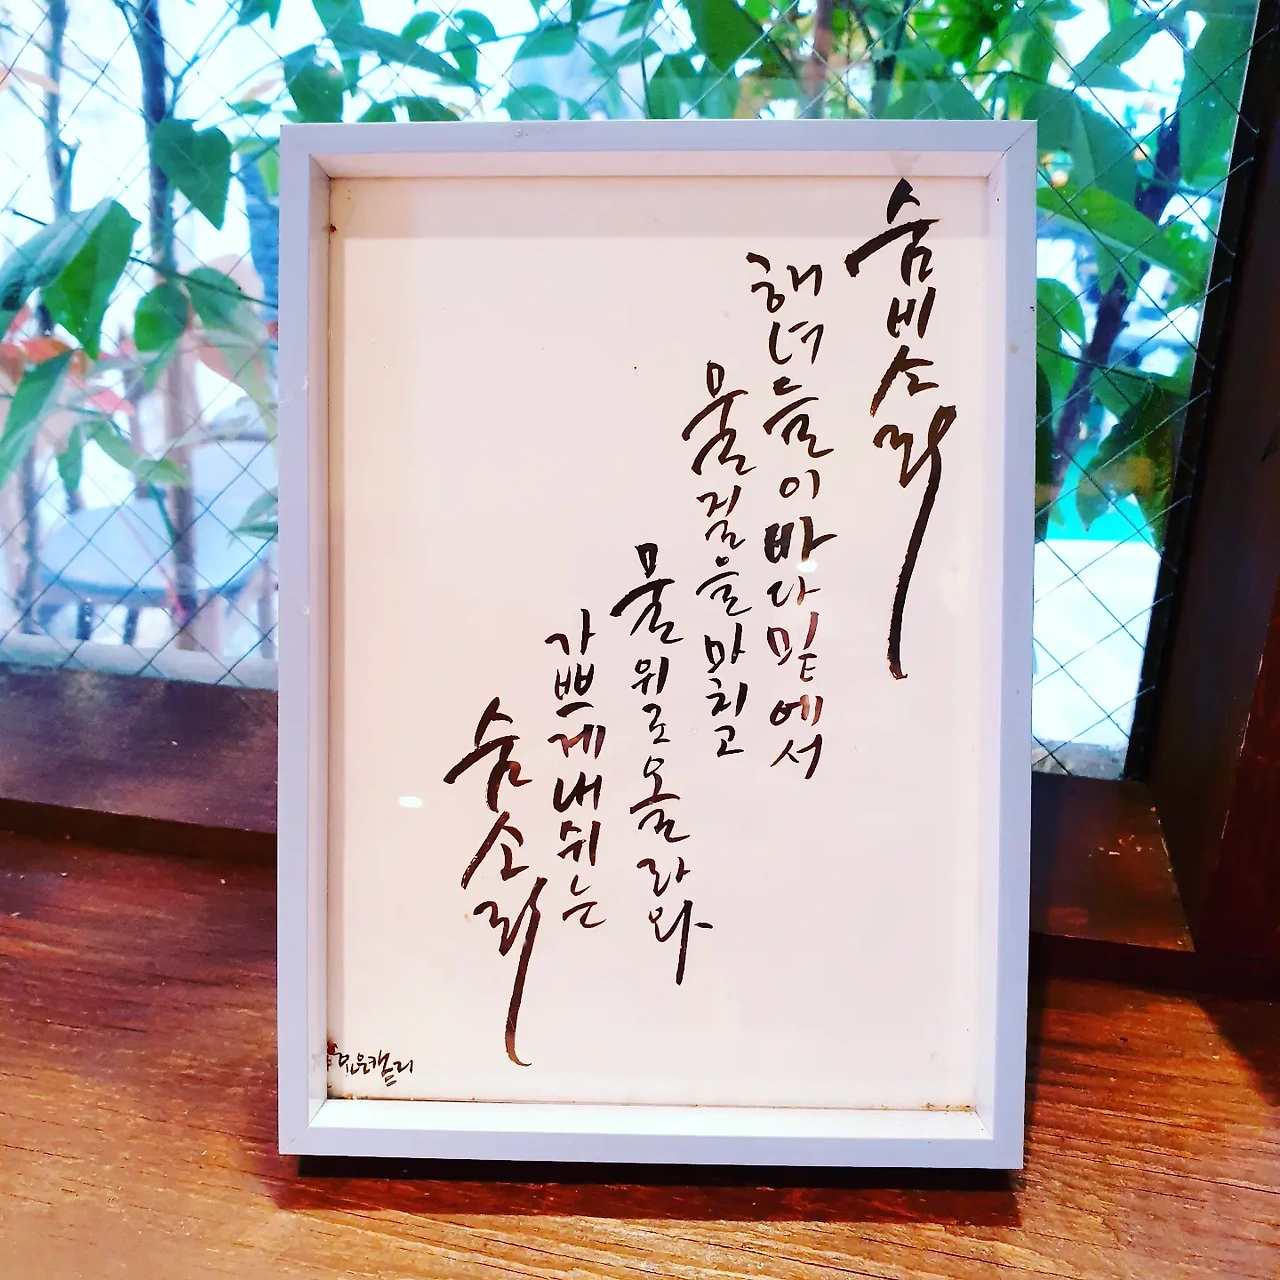 숨비소리
해녀들이바다밑에서
물질을마치고
물위로올라와
가쁘게내쉬는
숨소리